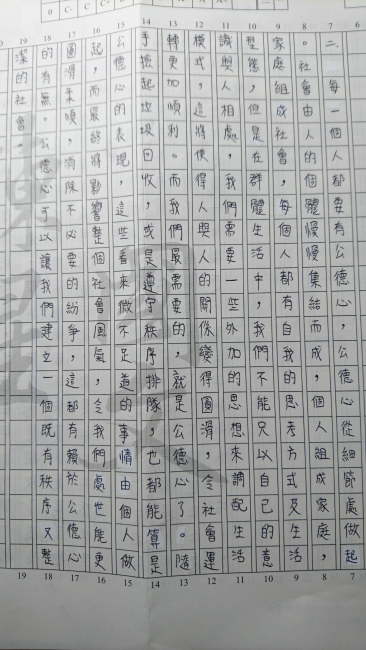 二、每一個人都要有公德心，公德心從細節處做起
。社會由人的個體慢慢集結而成，個人組成家庭，
家庭組成社會，每個人都有自我的思考方式及生活
型態，但是在群體生活中，我們不能只以自己的意
識與人相處，我們需要一些外加的思想來調配生活
模式，這將使得人與人的關係變得圓滑，令社會運
轉更加順利。而我們最需要的，就是公德心了。隨
手撿起垃圾回收，或是遵守秩序排隊，也都能算是
公德心的表現，這些看來微不足道的事情由個人做
起，而最終將影響整個社會風氣，令我們處世能更
圓滑柔順，消除不必要的紛爭，這都有賴於公德心
的有無。公德心可以讓我們建立一個既有秩序又整
潔的社會。